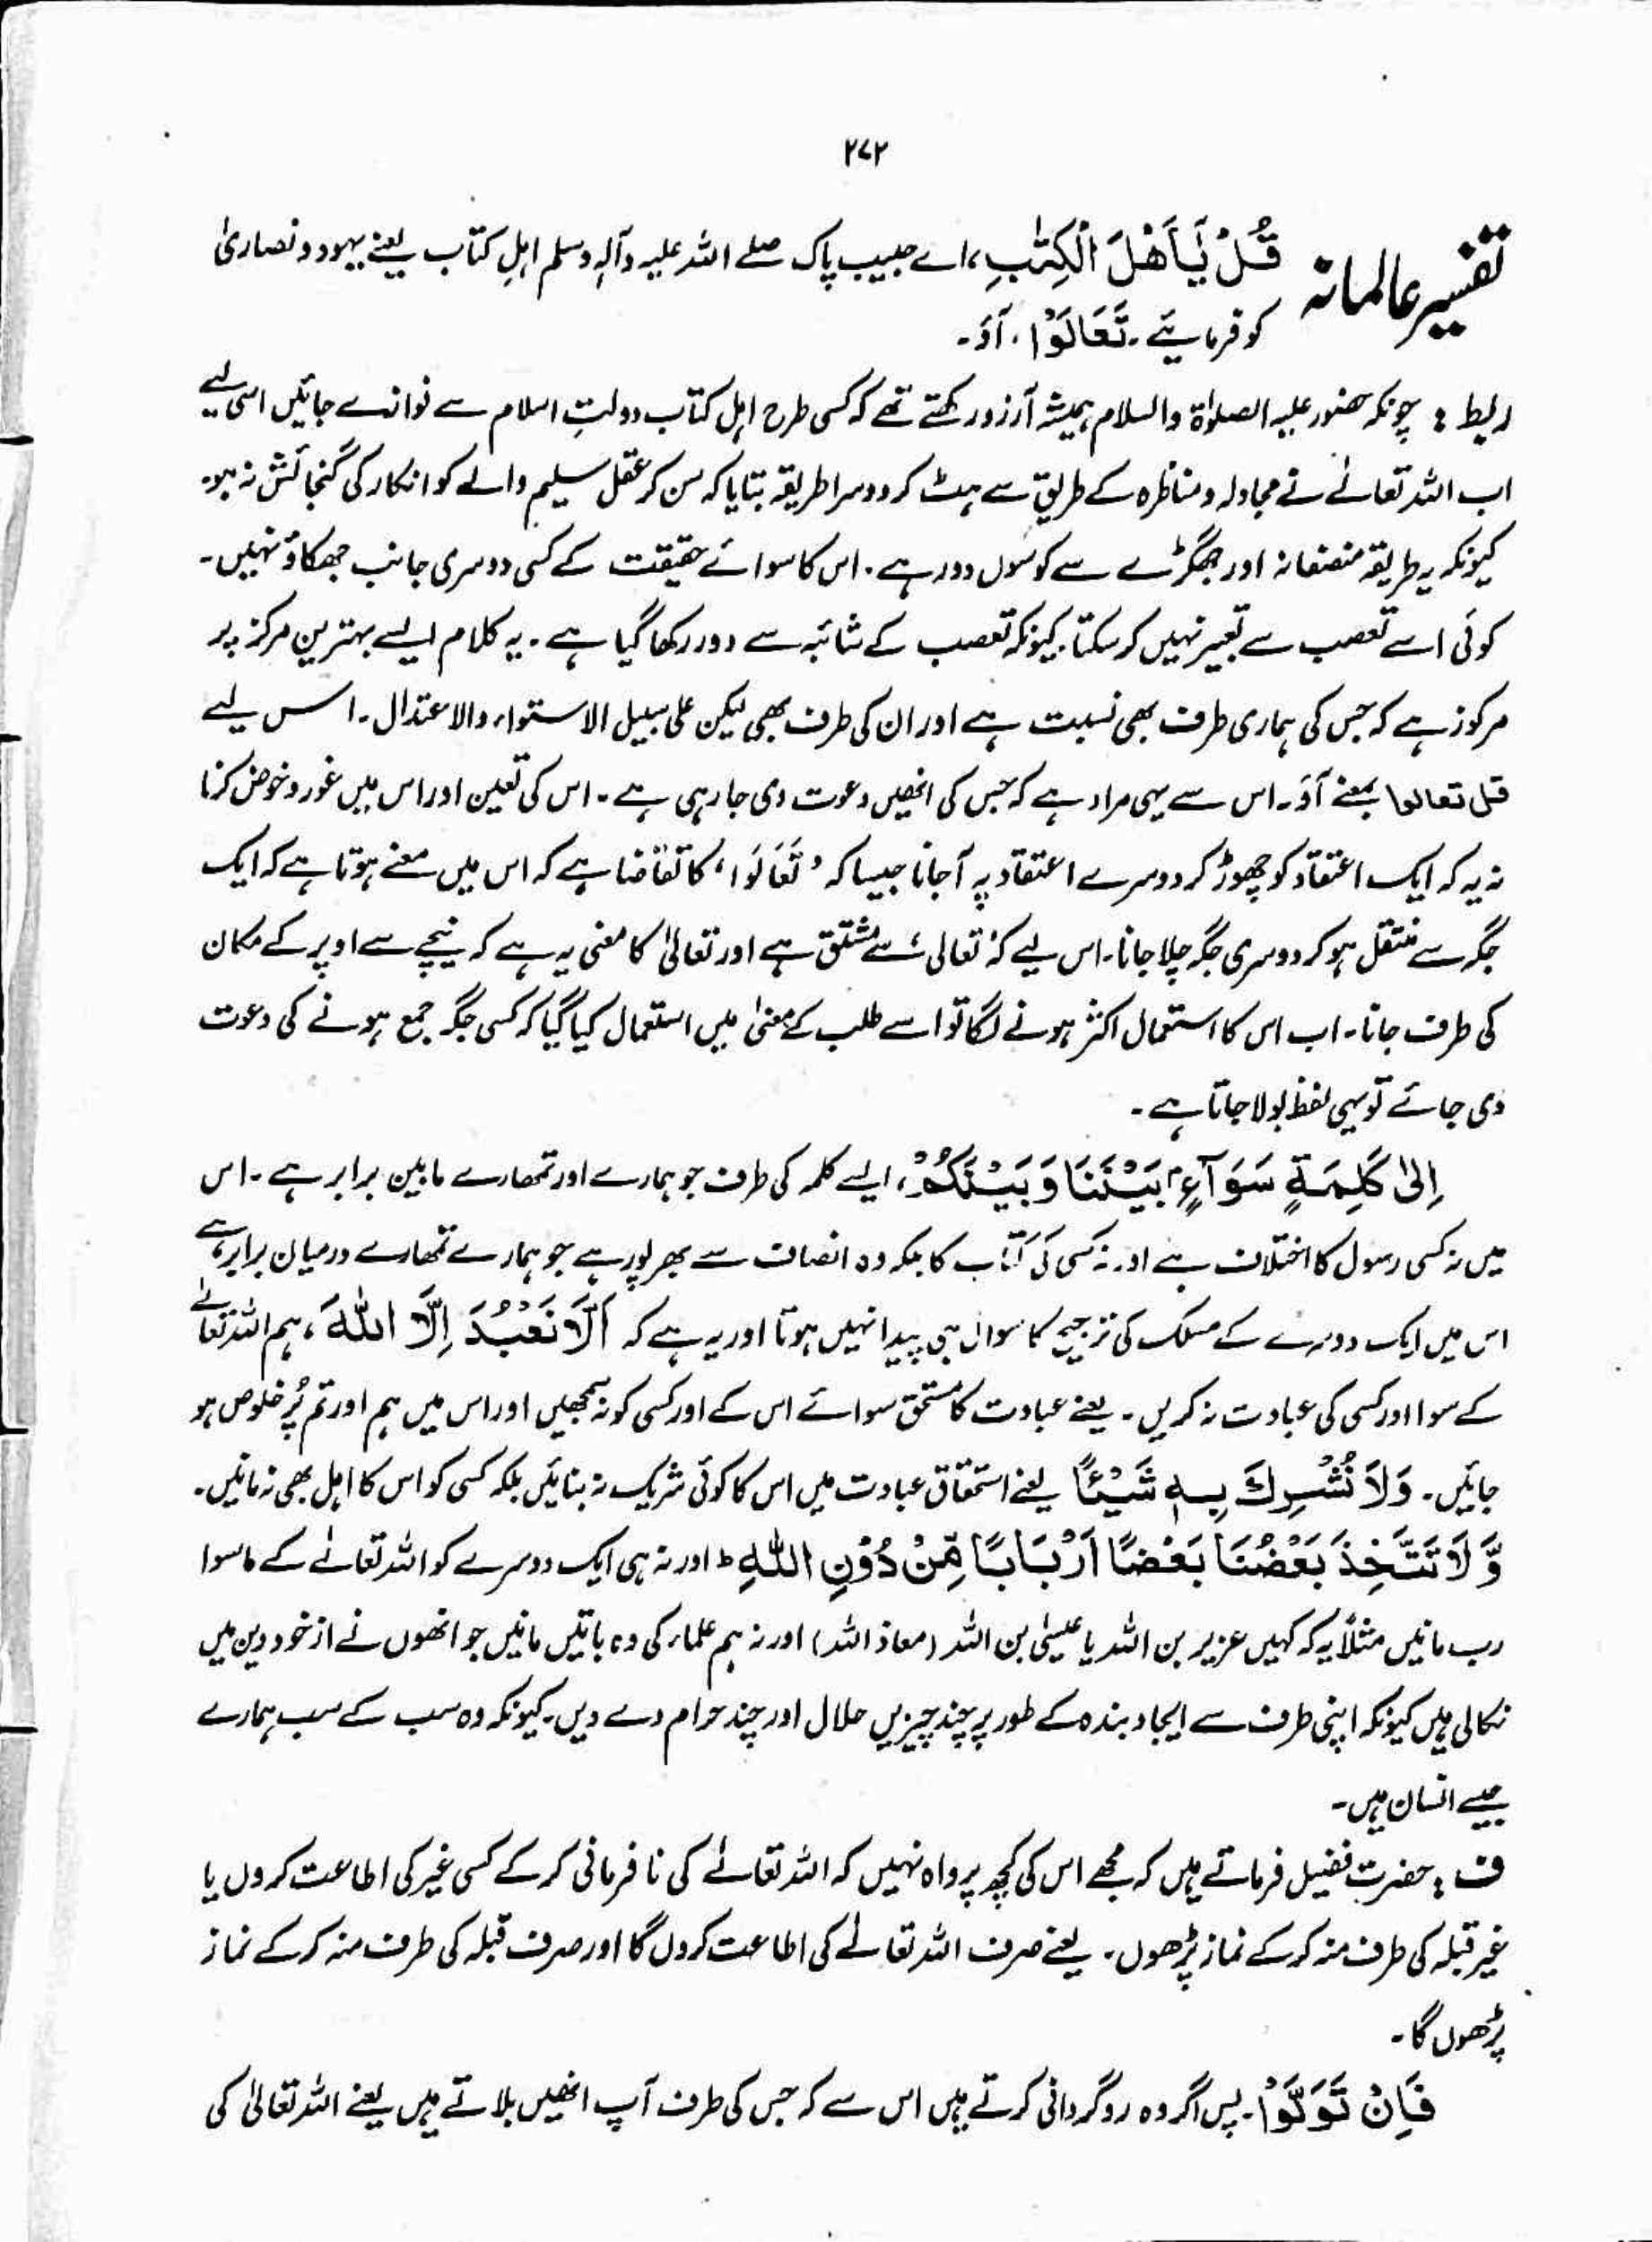 ۲۷۲
تفسیر عالمانہ قُلْ یٰۤاَهْلَ الْكِتٰبِ، اے حبیب پاک صلے اللہ علیہ وآلہٖ وسلم اہلِ کتاب یعنے یہود و نصاریٰ
کو فرمایئے۔ تَعَالَوْا، آؤ۔
ربط : چونکہ حضور علیہ الصلوٰۃ والسلام ہمیشہ آرزو رکھتے تھے کہ کسی طرح اہل کتاب دولتِ اسلام سے نوازے جائیں اسی لیے
اب اللہ تعالےٰ نے مجادلہ و مناظرہ کے طریق سے ہٹ کر دوسرا طریقہ بتایا کہ سن کر عقل سلیم والے کو انکار کی گنجائش نہ ہو۔
کیونکہ یہ طریقہ منصفانہ اور جھگڑے سے کوسوں دور ہے۔ اس کا سوائے حقیقت کے کسی دوسری جانب جھکاؤ نہیں۔
کوئی اسے تعصب سے تعبیر نہیں کر سکتا کیونکہ تعصب کے شائبہ سے دور رکھا گیا ہے۔ یہ کلام ایسے بہترین مرکز پر
مرکوز ہے کہ جس کی ہماری طرف بھی نسبت ہے اور ان کی طرف بھی لیکن علی سبیل الاستواء والاعتدال۔ اس لیے
قل تعالوا بمعنے آؤ۔ اس سے یہی مراد ہے کہ جس کی انھیں دعوت دی جا رہی ہے۔ اس کی تعین اور اس میں غور و خوض کرنا
نہ یہ کہ ایک اعتقاد کو چھوڑ کر دوسرے اعتقاد پہ آجانا جیسا کہ ’تَعَالَوا‘ کا تقاضا ہے کہ اس میں معنے ہوتا ہے کہ ایک
جگہ سے منتقل ہو کر دوسری جگہ چلا جانا۔ اس لیے کہ ’تعالی‘ سے مشتق ہے اور تعالیٰ کا معنی یہ ہے کہ نیچے سے اوپر کے مکان
کی طرف جانا۔ اب اس کا استعمال اکثر ہونے لگا تو اسے طلب کے معنیٰ میں استعمال کیا گیا کہ کسی جگہ جمع ہونے کی دعوت
دی جائے تو یہی لفظ بولا جاتا ہے۔
اِلٰی كَلِمَةٍ سَوَآءٍۭ بَیْنَنَا وَ بَیْنَكُمْ، ایسے کلمہ کی طرف جو ہمارے اور تمھارے مابین برابر ہے۔ اس
میں نہ کسی رسول کا اختلاف ہے اور نہ کسی کی کتاب کا بلکہ وہ انصاف سے بھرپور ہے جو ہمارے تمھارے درمیان برابر ہے
اس میں ایک دوسرے کے مسلک کی ترجیح کا سوال ہی پیدا نہیں ہوتا اور یہ ہے کہ اَلَّا نَعْبُدَ اِلَّا اللّٰهَ، ہم اللہ تعالےٰ
کے سوا اور کسی کی عبادت نہ کریں۔ یعنے عبادت کا مستحق سوائے اس کے اور کسی کو نہ سمجھیں اور اس میں ہم اور تم پُر خلوص ہو
جائیں۔ وَلَا نُشْرِكَ بِهٖ شَیْئًا یعنے استحقاق عبادت میں اس کا کوئی شریک نہ بنائیں بلکہ کسی کو اس کا اہل بھی نہ مانیں۔
وَّ لَا تَتَّخِذَ بَعْضُنَا بَعْضًا اَرْبَابًا مِّنْ دُوْنِ اللّٰهِ ط اور نہ ہی ایک دوسرے کو اللہ تعالےٰ کے ماسوا
رب مانیں مثلاً یہ کہ کہیں عزیر بن اللہ یا عیسیٰ بن اللہ (معاذ اللہ) اور نہ ہم علماء کی وہ باتیں مانیں جو انھوں نے از خود دین میں
نکالی ہیں کیونکہ اپنی طرف سے ایجاد بندہ کے طور پر چند چیزیں حلال اور چند حرام دے دیں۔ کیونکہ وہ سب کے سب ہمارے
جیسے انسان ہیں۔
ف : حضرت فضیل فرماتے ہیں کہ مجھے اس کی کچھ پرواہ نہیں کہ اللہ تعالےٰ کی نافرمانی کر کے کسی غیر کی اطاعت کروں یا
غیر قبلہ کی طرف منہ کر کے نماز پڑھوں۔ یعنے صرف اللہ تعالےٰ کی اطاعت کروں گا اور صرف قبلہ کی طرف منہ کر کے نماز
پڑھوں گا۔
فَاِنْ تَوَلَّوْا۔ پس اگر وہ روگردانی کرتے ہیں اس سے کہ جس کی طرف آپ انھیں بلاتے ہیں یعنے اللہ تعالیٰ کی